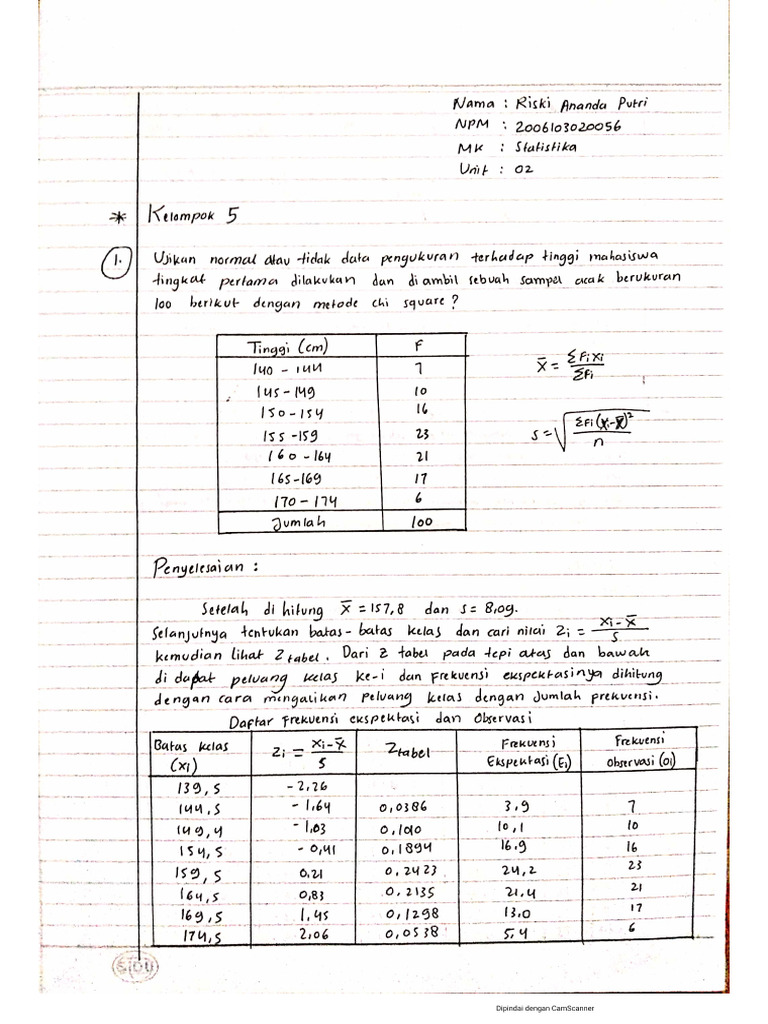 Nama : Riski Ananda Putri
NPM : 2006103020056
MK : Statistika
Unit : 02
* Kelompok 5
1. Ujikan normal atau tidak data pengukuran terhadap tinggi mahasiswa
tingkat pertama dilakukan dan diambil sebuah sampel acak berukuran
100 berikut dengan metode chi square?
Tinggi (cm) F
140 - 144 7
145 - 149 10
150 - 154 16
155 - 159 23
160 - 164 21
165 - 169 17
170 - 174 6
Jumlah 100
x̄ = ΣFixi / ΣFi
s = √(ΣFi(xi-x̄)² / n)
Penyelesaian :
Setelah di hitung x̄ = 157,8 dan s = 8,09.
Selanjutnya tentukan batas-batas kelas dan cari nilai Zi = xi - x̄ / s
kemudian lihat Z tabel. Dari Z tabel pada tepi atas dan bawah
di dapat peluang kelas ke-i dan frekuensi ekspektasinya dihitung
dengan cara mengalikan peluang kelas dengan jumlah prekuensi.
Daftar frekuensi ekspektasi dan Observasi
Batas kelas (xi) Zi = xi - x̄ / s Ztabel Frekuensi Ekspektasi (Ei) Frekuensi Observasi (Oi)
139,5 -2,26
144,5 -1,64 0,0386 3,9 7
149,4 -1,03 0,1010 10,1 10
154,5 -0,41 0,1894 16,9 16
159,5 0,21 0,2423 24,2 23
164,5 0,83 0,2135 21,4 21
169,5 1,45 0,1298 13,0 17
174,5 2,06 0,0538 5,4 6
SIDU
Dipindai dengan CamScanner